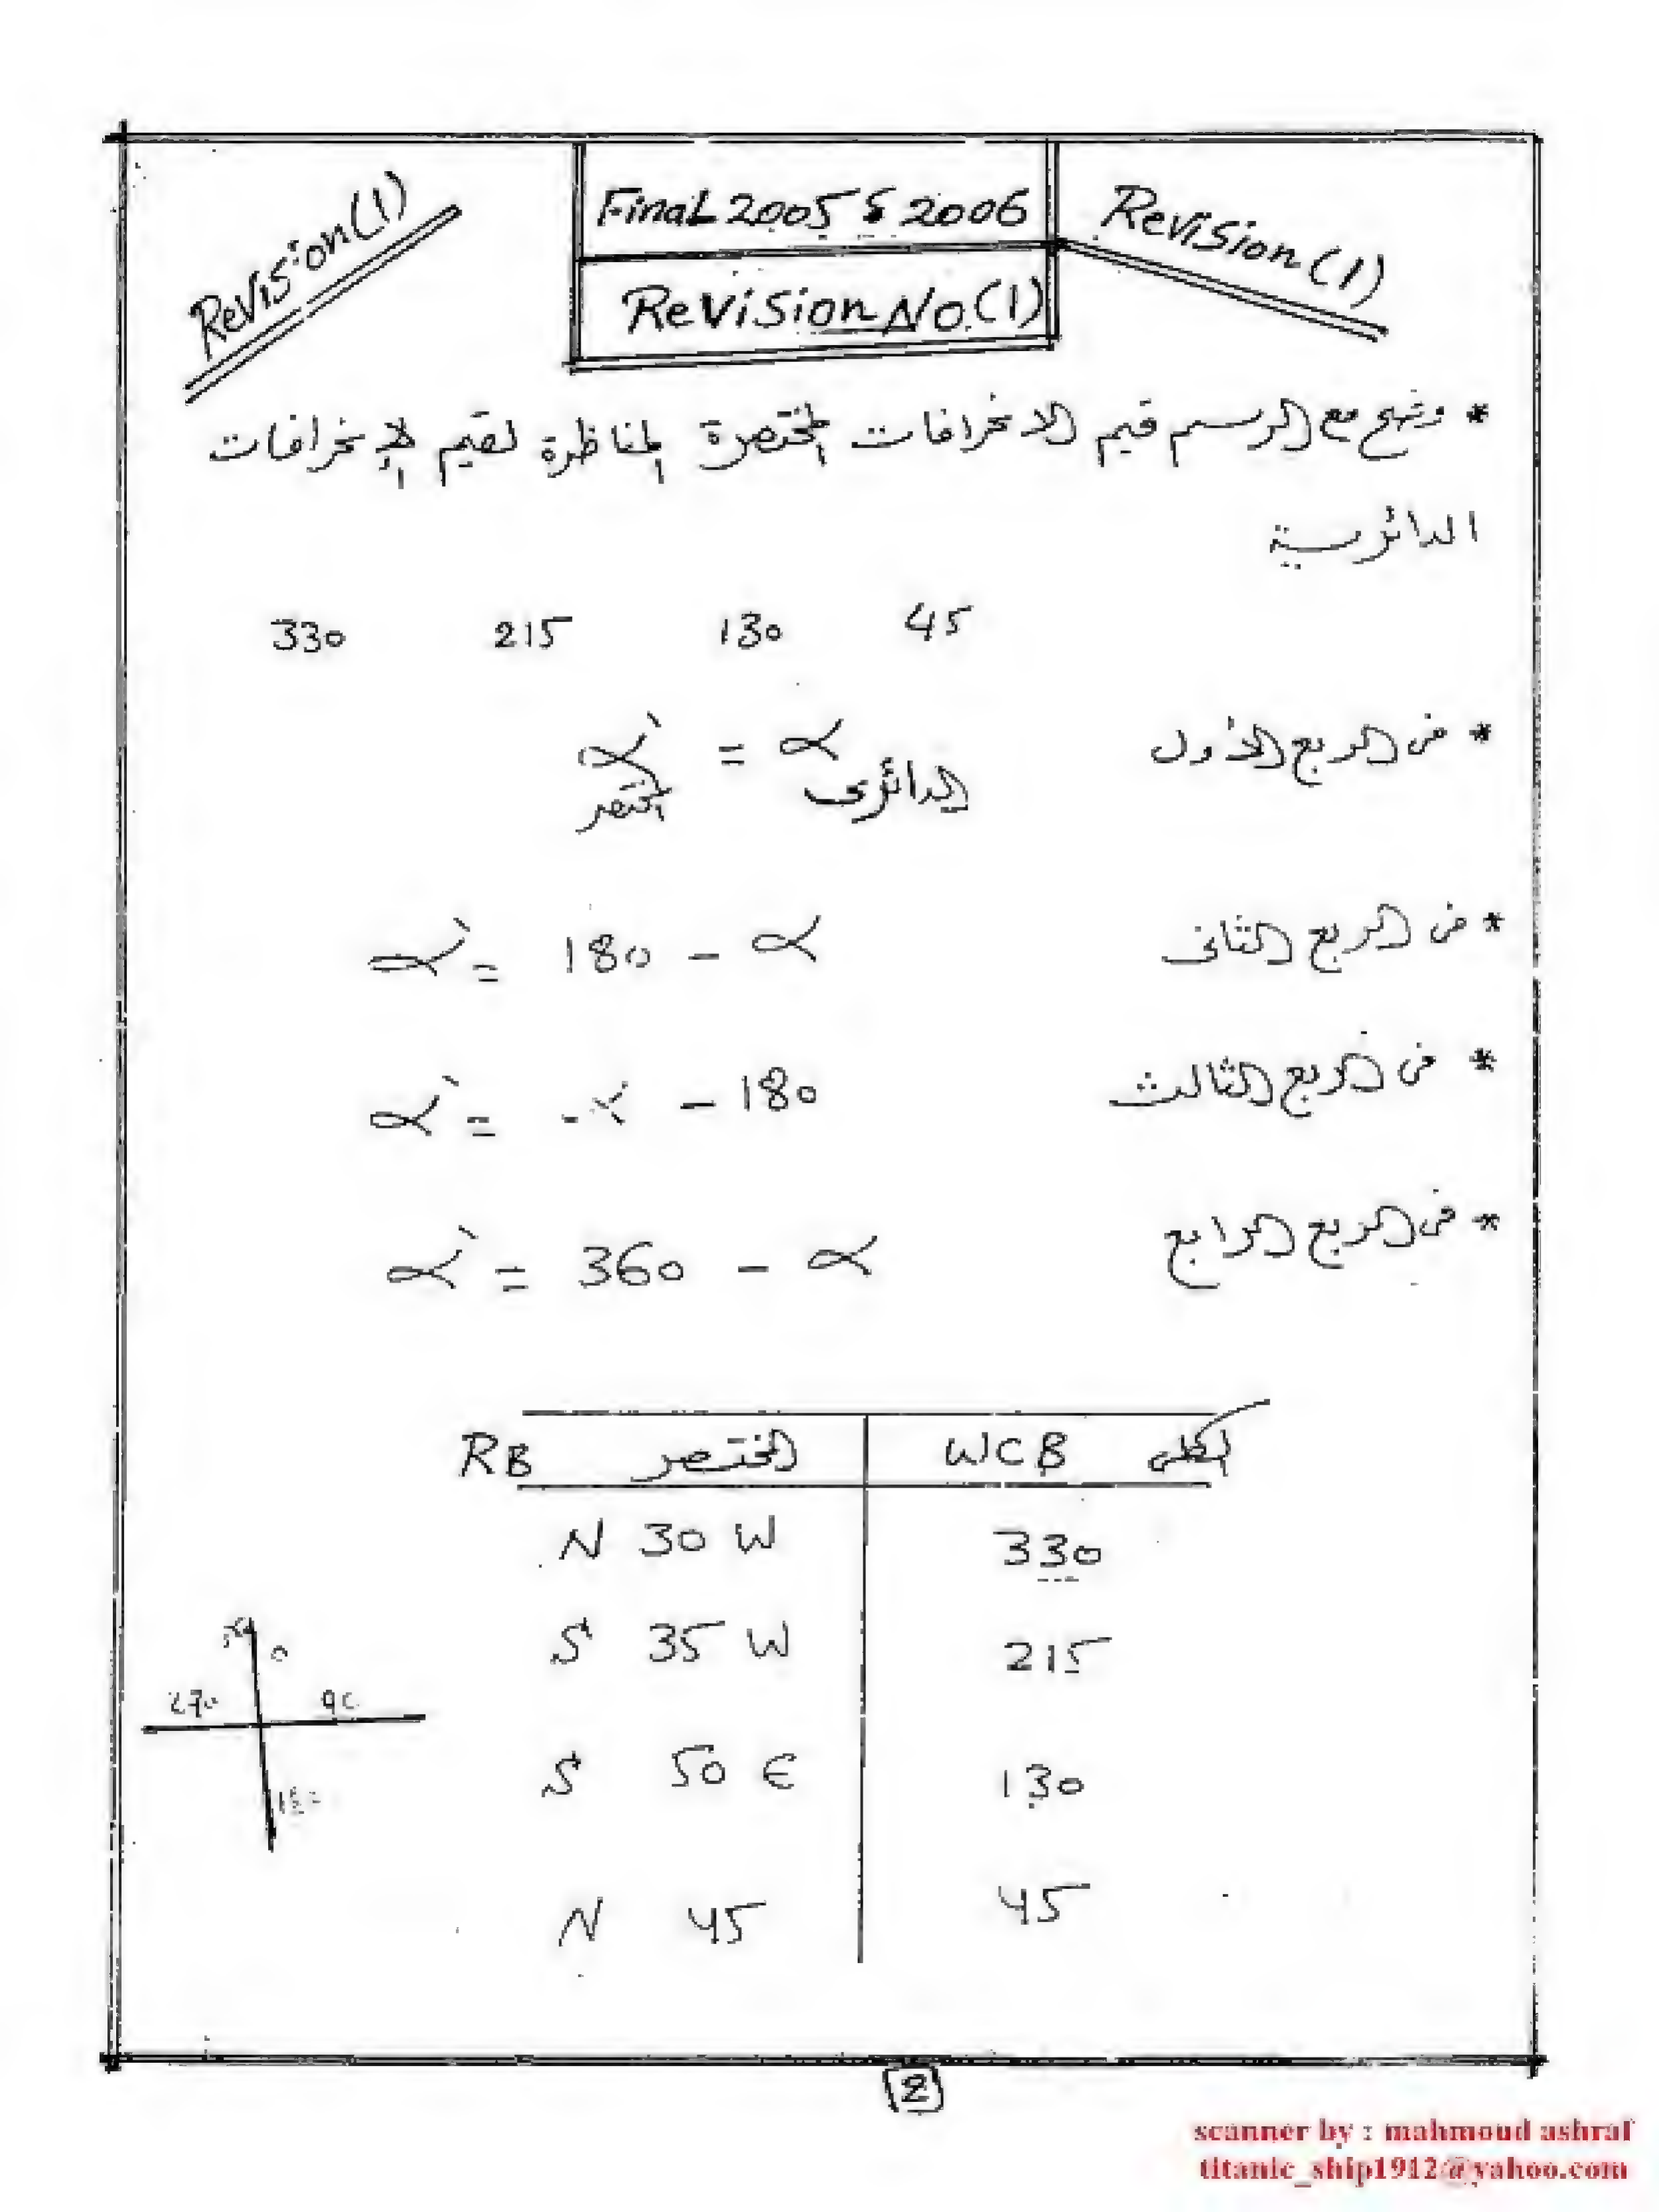 Revision(1)
Final 2005 & 2006
Revision No.(1)
Revision(1)
* وضح مع الرسم قيم الانحرافات المختصرة المناظرة لقيم الإنحرافات
الدائرية
330 215 130 45
* فى الربع الأول
α' = α
المختصر الدائرى
* فى الربع الثانى
α' = 180 - α
* فى الربع الثالث
α' = α - 180
* فى الربع الرابع
α' = 360 - α
RB المختصر WCB الكلى
N 30 W 330
S 35 W 215
S 50 E 130
N 45 45
360 0
270 90
180
2
scanner by : mahmoud ashraf
titanic_ship1912@yahoo.com